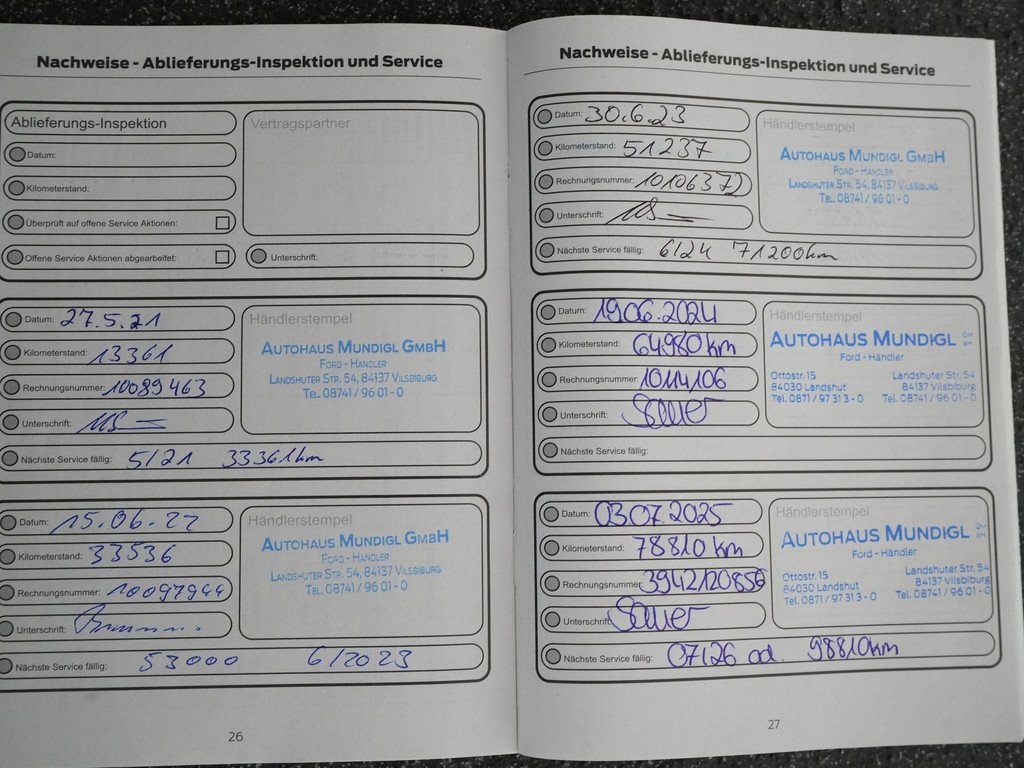 Nachweise - Ablieferungs-Inspektion und Service
Ablieferungs-Inspektion
Vertragspartner
Datum:
Kilometerstand:
Überprüft auf offene Service Aktionen:
Offene Service Aktionen abgearbeitet:
Unterschrift:
Datum: 27.5.21
Händlerstempel
Kilometerstand: 13361
AUTOHAUS MUNDIGL GMBH
FORD - HÄNDLER
LANDSHUTER STR. 54, 84137 VILSBIBURG
TEL. 08741 / 96 01 - 0
Rechnungsnummer: 10089463
Unterschrift:
Nächste Service fällig: 5/21 33361km
Datum: 15.06.22
Händlerstempel
Kilometerstand: 33536
AUTOHAUS MUNDIGL GMBH
FORD - HÄNDLER
LANDSHUTER STR. 54, 84137 VILSBIBURG
TEL. 08741 / 96 01 - 0
Rechnungsnummer: 10097944
Unterschrift:
Nächste Service fällig: 53000 6/2023
26
Nachweise - Ablieferungs-Inspektion und Service
Datum: 30.6.23
Händlerstempel
Kilometerstand: 51237
AUTOHAUS MUNDIGL GMBH
FORD - HÄNDLER
LANDSHUTER STR. 54, 84137 VILSBIBURG
TEL. 08741 / 96 01 - 0
Rechnungsnummer: 10106372
Unterschrift:
Nächste Service fällig: 6/24 71200km
Datum: 19.06.2024
Händlerstempel
Kilometerstand: 64980 km
AUTOHAUS MUNDIGL GMBH
Ford - Händler
Ottostr. 15 Landshuter Str. 54
84030 Landshut 84137 Vilsbiburg
Tel. 0871 / 97 31 3 - 0 Tel. 08741 / 96 01 - 0
Rechnungsnummer: 10114106
Unterschrift: Sauer
Nächste Service fällig:
Datum: 03.07.2025
Händlerstempel
Kilometerstand: 78810 km
AUTOHAUS MUNDIGL GMBH
Ford - Händler
Ottostr. 15 Landshuter Str. 54
84030 Landshut 84137 Vilsbiburg
Tel. 0871 / 97 31 3 - 0 Tel. 08741 / 96 01 - 0
Rechnungsnummer: 3942120856
Unterschrift: Sauer
Nächste Service fällig: 07/26 od. 98810km
27